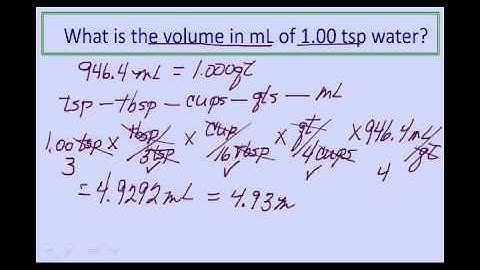 What is the volume in mL of 1.00 tsp water?
946.4 mL = 1.000qt
tsp – tbsp – cups – qts – mL
1.00 tsp x tbsp/3 tsp x cup/16 tbsp x qt/4 cups x 946.4 mL/qt
3 4
= 4.9292 mL = 4.93 m